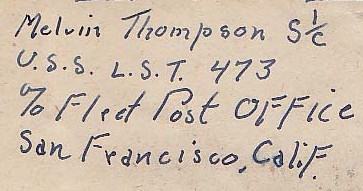 Melvin Thompson S 1/c
U.S.S. L.S.T. 473
% Fleet Post Office
San Francisco, Calif.